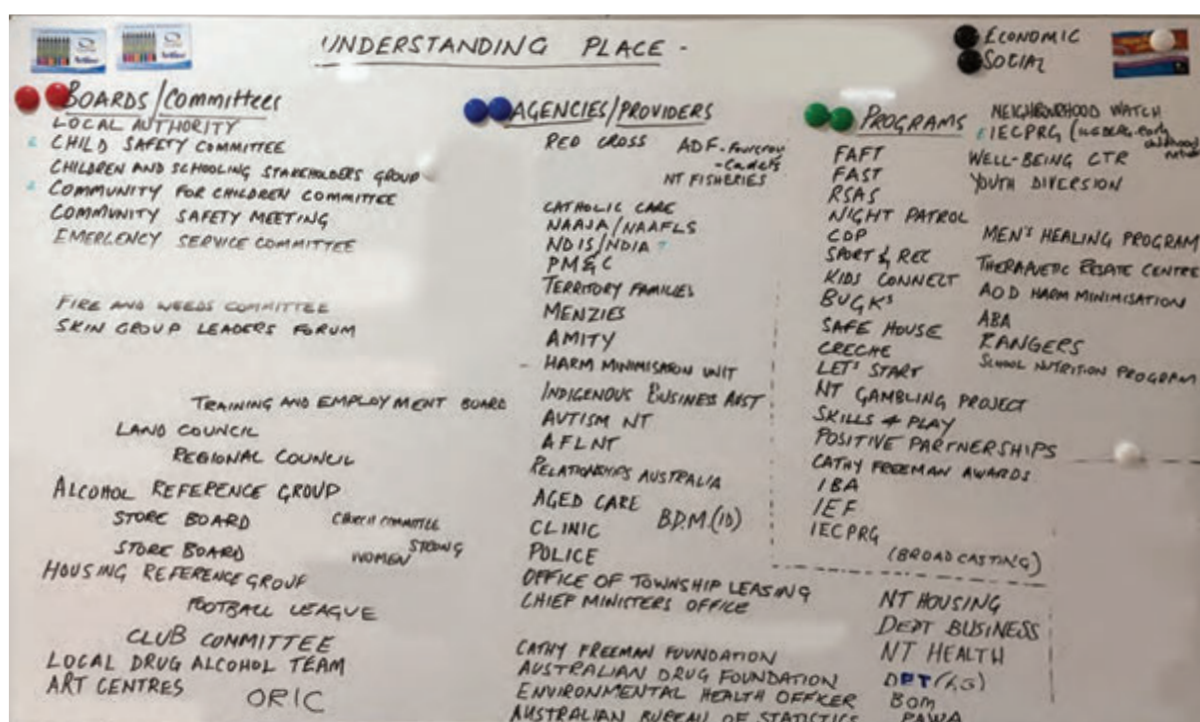 UNDERSTANDING PLACE -
ECONOMIC
SOCIAL
BOARDS/Committees
LOCAL AUTHORITY
CHILD SAFETY COMMITTEE
CHILDREN AND SCHOOLING STAKEHOLDERS GROUP
COMMUNITY FOR CHILDREN COMMITTEE
COMMUNITY SAFETY MEETING
EMERGENCY SERVICE COMMITTEE
FIRE AND WEEDS COMMITTEE
SKIN GROUP LEADERS FORUM
TRAINING AND EMPLOYMENT BOARD
LAND COUNCIL
REGIONAL COUNCIL
ALCOHOL REFERENCE GROUP
STORE BOARD
CHURCH COMMITTEE
STORE BOARD
STRONG
WOMEN
HOUSING REFERENCE GROUP
FOOTBALL LEAGUE
CLUB COMMITTEE
LOCAL DRUG ALCOHOL TEAM
ART CENTRES
ORIC
AGENCIES/PROVIDERS
RED CROSS
ADF-
-Cadets
NT FISHERIES
CATHOLIC CARE
NAAJA/NAAFLS
NDIS/NDIA ?
PM&C
TERRITORY FAMILIES
MENZIES
AMITY
- HARM MINIMISATION UNIT
INDIGENOUS BUSINESS AUST
AUTISM NT
AFLNT
RELATIONSHIPS AUSTRALIA
AGED CARE
B.D.M.(ID)
CLINIC
POLICE
OFFICE OF TOWNSHIP LEASING
CHIEF MINISTERS OFFICE
CATHY FREEMAN FOUNDATION
AUSTRALIAN DRUG FOUNDATION
ENVIRONMENTAL HEALTH OFFICER
AUSTRALIAN BUREAU OF STATISTICS
NT HOUSING
DEPT BUSINESS
NT HEALTH
DPT
BOM
PAWA
PROGRAMS
FAFT
FAST
RSAS
NIGHT PATROL
CDP
SPORT & REC
KIDS CONNECT
BUGK's
SAFE HOUSE
CRECHE
LET'S START
NT GAMBLING PROJECT
SKILLS 4 PLAY
POSITIVE PARTNERSHIPS
CATHY FREEMAN AWARDS
IBA
IEF
IECPRG
(BROADCASTING)
NEIGHBOURHOOD WATCH
IECPRG (early childhood
WELL-BEING CTR
YOUTH DIVERSION
MEN'S HEALING PROGRAM
THERAPUETIC RESPITE CENTRE
AOD HARM MINIMISATION
ABA
RANGERS
SCHOOL NUTRITION PROGRAM